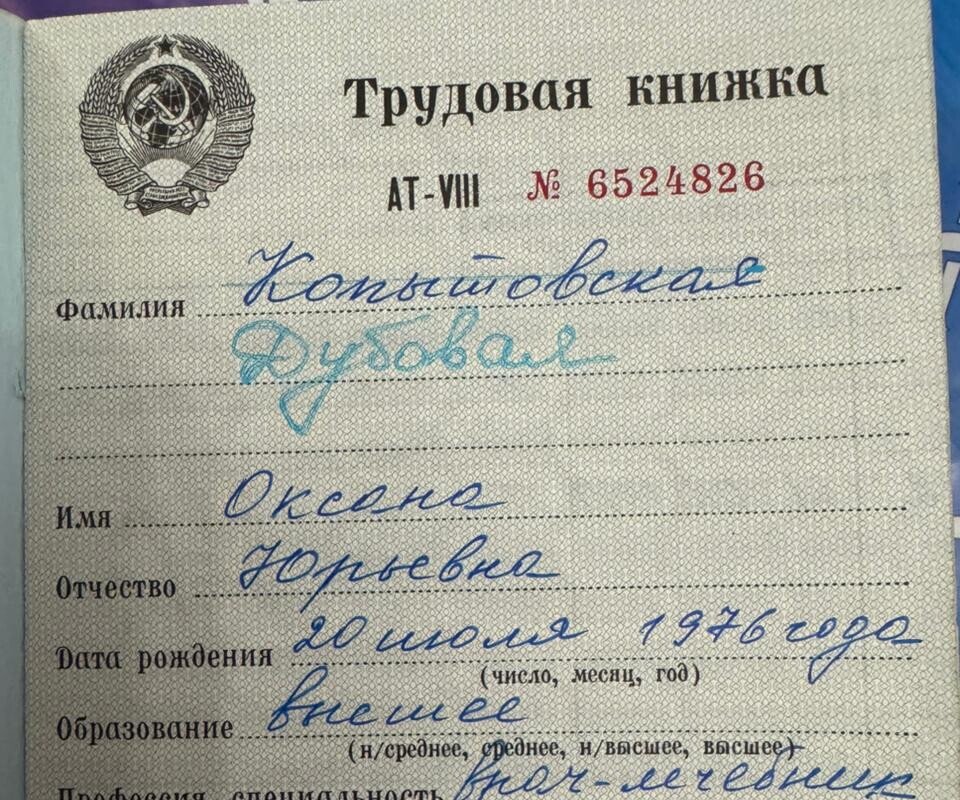 Трудовая книжка
АТ-VIII № 6524826
Фамилия Копытовская
Дубовая
Имя Оксана
Отчество Юрьевна
Дата рождения 20 июля 1976 года
(число, месяц, год)
Образование высшее
(н/среднее, среднее, н/высшее, высшее)
Профессия, специальность врач-лечебник